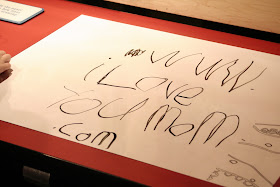 WWW.
i Love
You mom
.com